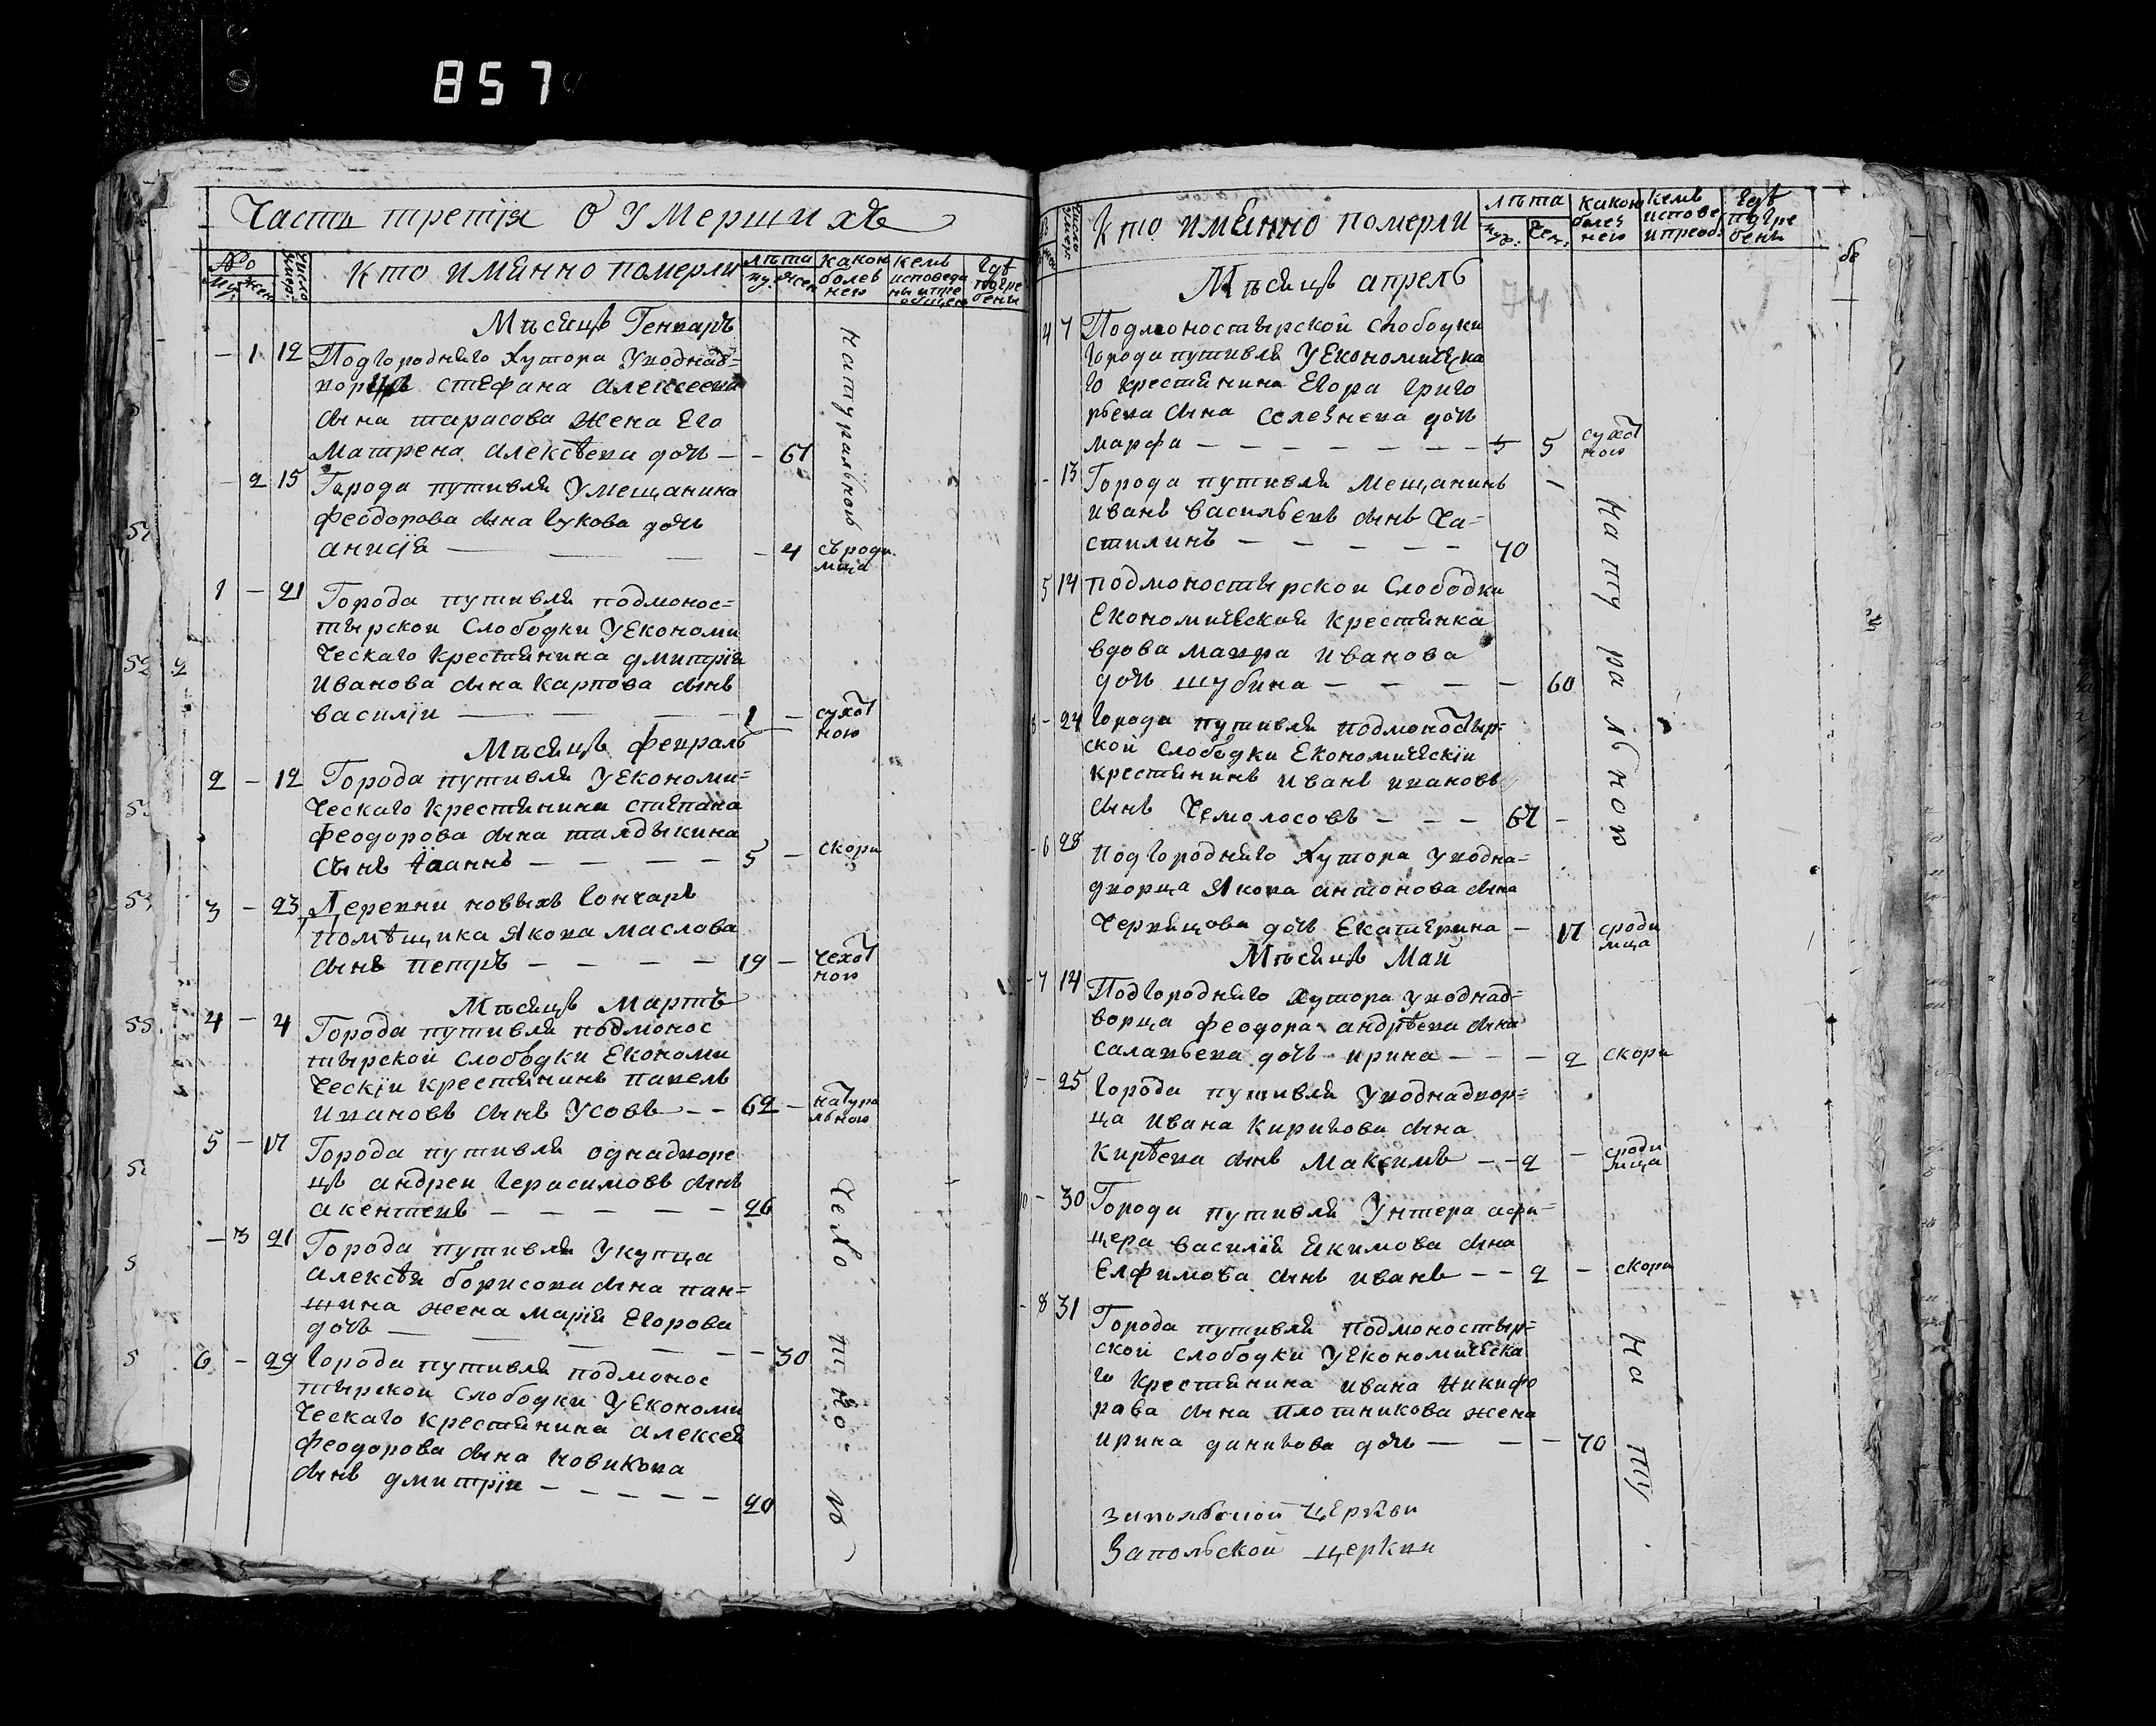 857
Часть третїя О УМершихъ
№
Му: Жен
число умер:
Кто имянно померли
лѣта
му. жен
какою болез нею
кемъ исповеда ны и прео общен
гдѣ погре бены
Мѣсяцъ Генваръ
— 1 12 Подгороднѣго Хутора Уноднад=
ворца стефана алексеева
сына тарасова жена Его
Матрена алексѣева дочь — — 67
натуральною
— 2 15 Города путивля Умещанина
феодорова сына Гукова дочь
анисїя — — — — 4 съроди мца
1 — 21 Города путивля подмонос=
тырской Слободки УЕкономи
ческаго Крестянина дмитрїя
Иванова сына Карпова сынъ
василїи — — — 1 — сухот ною
Мѣсяцъ февраль
2 — 12 Города путивля УЕкономи=
ческаго Крестянина стѣпана
феодорова сына талдыкина
Сынъ Їоаннъ — — — — 5 — скори
3 — 23 Деревни новыхъ Гончаръ
помѣщика Якова Маслова
сынъ петръ — — — — 19 — чехот ною
Мѣсяцъ Мартъ
4 — 4 Города путивля подмонос
тырской слободки Економи
ческїи крестянинъ павелъ
ивановъ сынъ Усовъ — — 62 — натура льною
5 — 17 Города путивля однадворе
цъ андреи Герасимовъ сынъ
акентевъ — — — — — 26
— 3 21 Города путивля Укупца
алексѣя борисова сына пан=
шина жена марїя Егорова
дочь — — — — — — 30
6 — 29 Города путивля подмонос
тырской Слободки УЕкономи
ческаго крестянина алексея
феодорова сына Новикова
сынъ дмитрїи — — — — — 20
Кто имянно померли
лѣта
муж: Жен:
какою болез нею
кемъ испове и преоб:
гдѣ погре бены
Мѣсяцъ апрель
74
4 7 Подмоностырской слободки
Города путивля УЕкономическа
го крестянина Егора григо
рьева сына Селезнева дочь
марфа — — — — — — — 5 5 сухот ною
- 13 Города путивля Мещанинъ
иванъ васильевъ сынъ Ча=
стилинъ — — — — — 70
1
натуральною
5 14 подмоностырской Слободки
Економическая Крестянка
вдова мавра Иванова
дочь шубина — — — — — 60
8 - 24 Города путивля подмоностыр=
ской слободки Економическїи
крестянинъ иванъ ивановъ
сынъ Чемолосовъ — — — 67 —
- 6 28 Подгороднѣго Хутора Унодна=
дворца Якова антонова сына
Чернѣцова дочь Екатѣрина — 17 сроди мца
Мѣсяцъ Май
- 7 14 Подгороднѣго хутора уноднад=
ворца феодора андрѣева сына
салавьева дочь ирина — — — 2 скори
9 - 25 Города путивля Уноднадвор=
ца Ивана Кирилова сына
Кирѣева сынъ Максимъ — — 2 — сроди мца
10 - 30 Города путивля Унтера афи=
цера василїя якимова сына
Елфимова сынъ иванъ — — 2 — скори
- 8 31 Города путивля Подмоностыр=
ской слободки УЕкономическа
го крестянина ивана Никифо
рава сына плотникова жена
ирина данилова дочь — — — 70
нату
запольской церкви
Запольской церкви